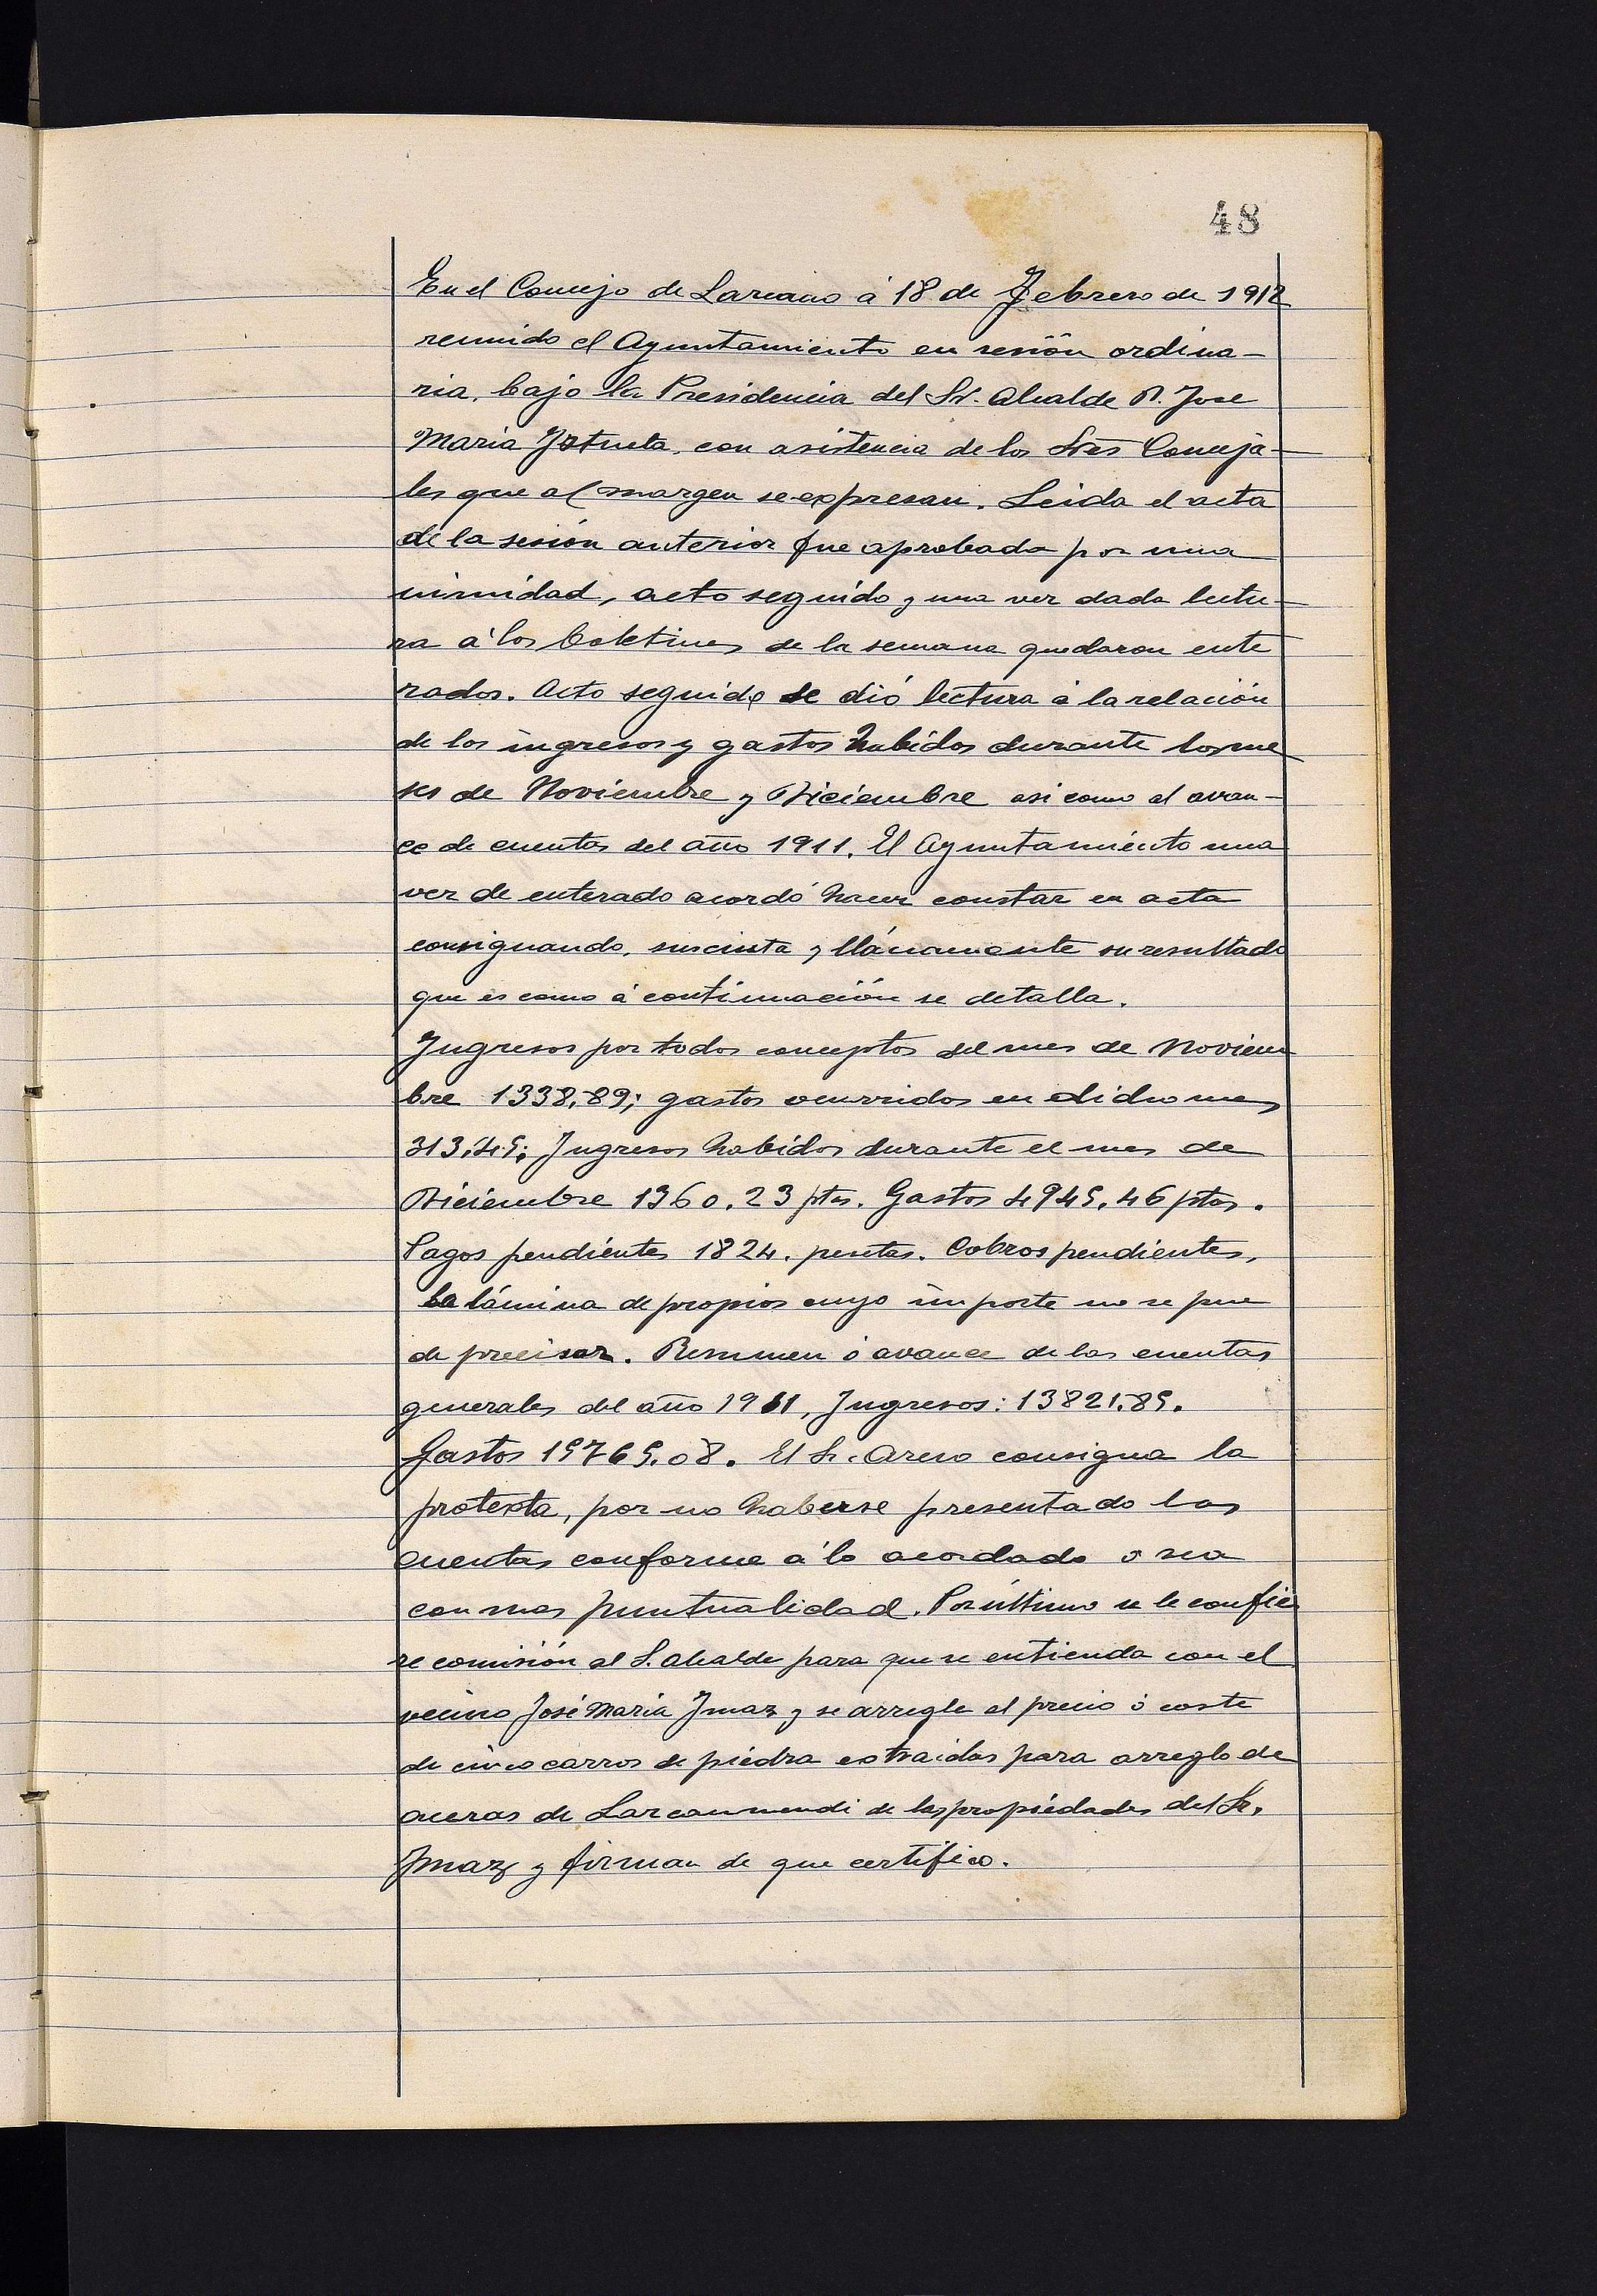 48
En el Concejo de Larcano á 18 de Febrero de 1912
reunido el Ayuntamiento en sesión ordina-
ria, bajo la Presidencia del Sr. Alcalde D. Jose
Maria Iztueta, con asistencia de los Sres Conceja-
les que al margen se expresan. Leida el acta
de la sesión anterior fue aprobada por una
nimidad, acto seguido y una vez dada lectu-
ra á los boletines de la semana quedaron ente
rados. Acto seguido se dió lectura á la relación
de los ingresos y gastos habidos durante los me
ses de Noviembre y Diciembre asi como al avan-
ce de cuentas del año 1911. El Ayuntamiento una
vez de enterado acordó hacer constar en acta
consignando, suscinta y llánamente su resultado
que es como á continuación se detalla.
Ingresos por todos conceptos del mes de Noviem
bre 1338,89; gastos ocurridos en dicho mes
313,45; Ingresos habidos durante el mes de
Diciembre 1360.23 ptas. Gastos 4945.46 ptas.
Pagos pendientes 1824. pesetas. Cobros pendientes,
la lámina de propios cuyo importe no se pue
de precisar. Resumen ó avance de las cuentas
generales del año 1911, Ingresos: 13821.85.
Gastos 15765.08. El Sr. consigna la
protexta, por no haberse presentado las
cuentas conforme á lo acordado ó sea
con mas puntualidad. Por último se le confie
re comisión al S. Alcalde para que se entienda con el
vecino José Maria Imaz y se arregle el precio ó coste
de cinco carros de piedra estraidas para arreglo de
aceras de Larcanmendi de las propiedades del Sr.
Imaz y firman de que certifico.